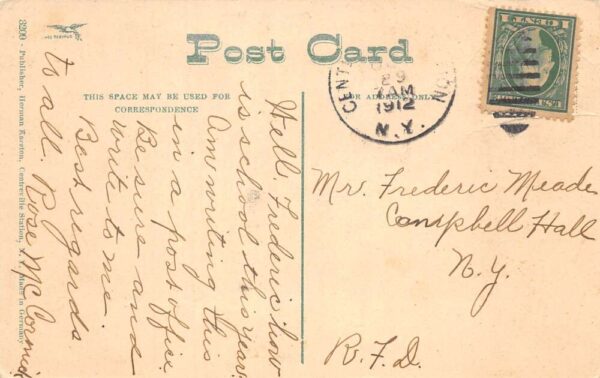 Post Card
THIS SPACE MAY BE USED FOR
CORRESPONDENCE
FOR ADDRESS ONLY
Well, Frederic how
is school this year.
Am writing this
in a post office.
Be sure and
write to me.
Best regards
to all. Rose McCormick
CENT
29
7AM
1912
N.Y.
Mr. Frederic Meade
Campbell Hall
N.Y.
R.F.D.
3209 - Publisher, Herman Karsten, Centreville Station, N.Y. Made in Germany